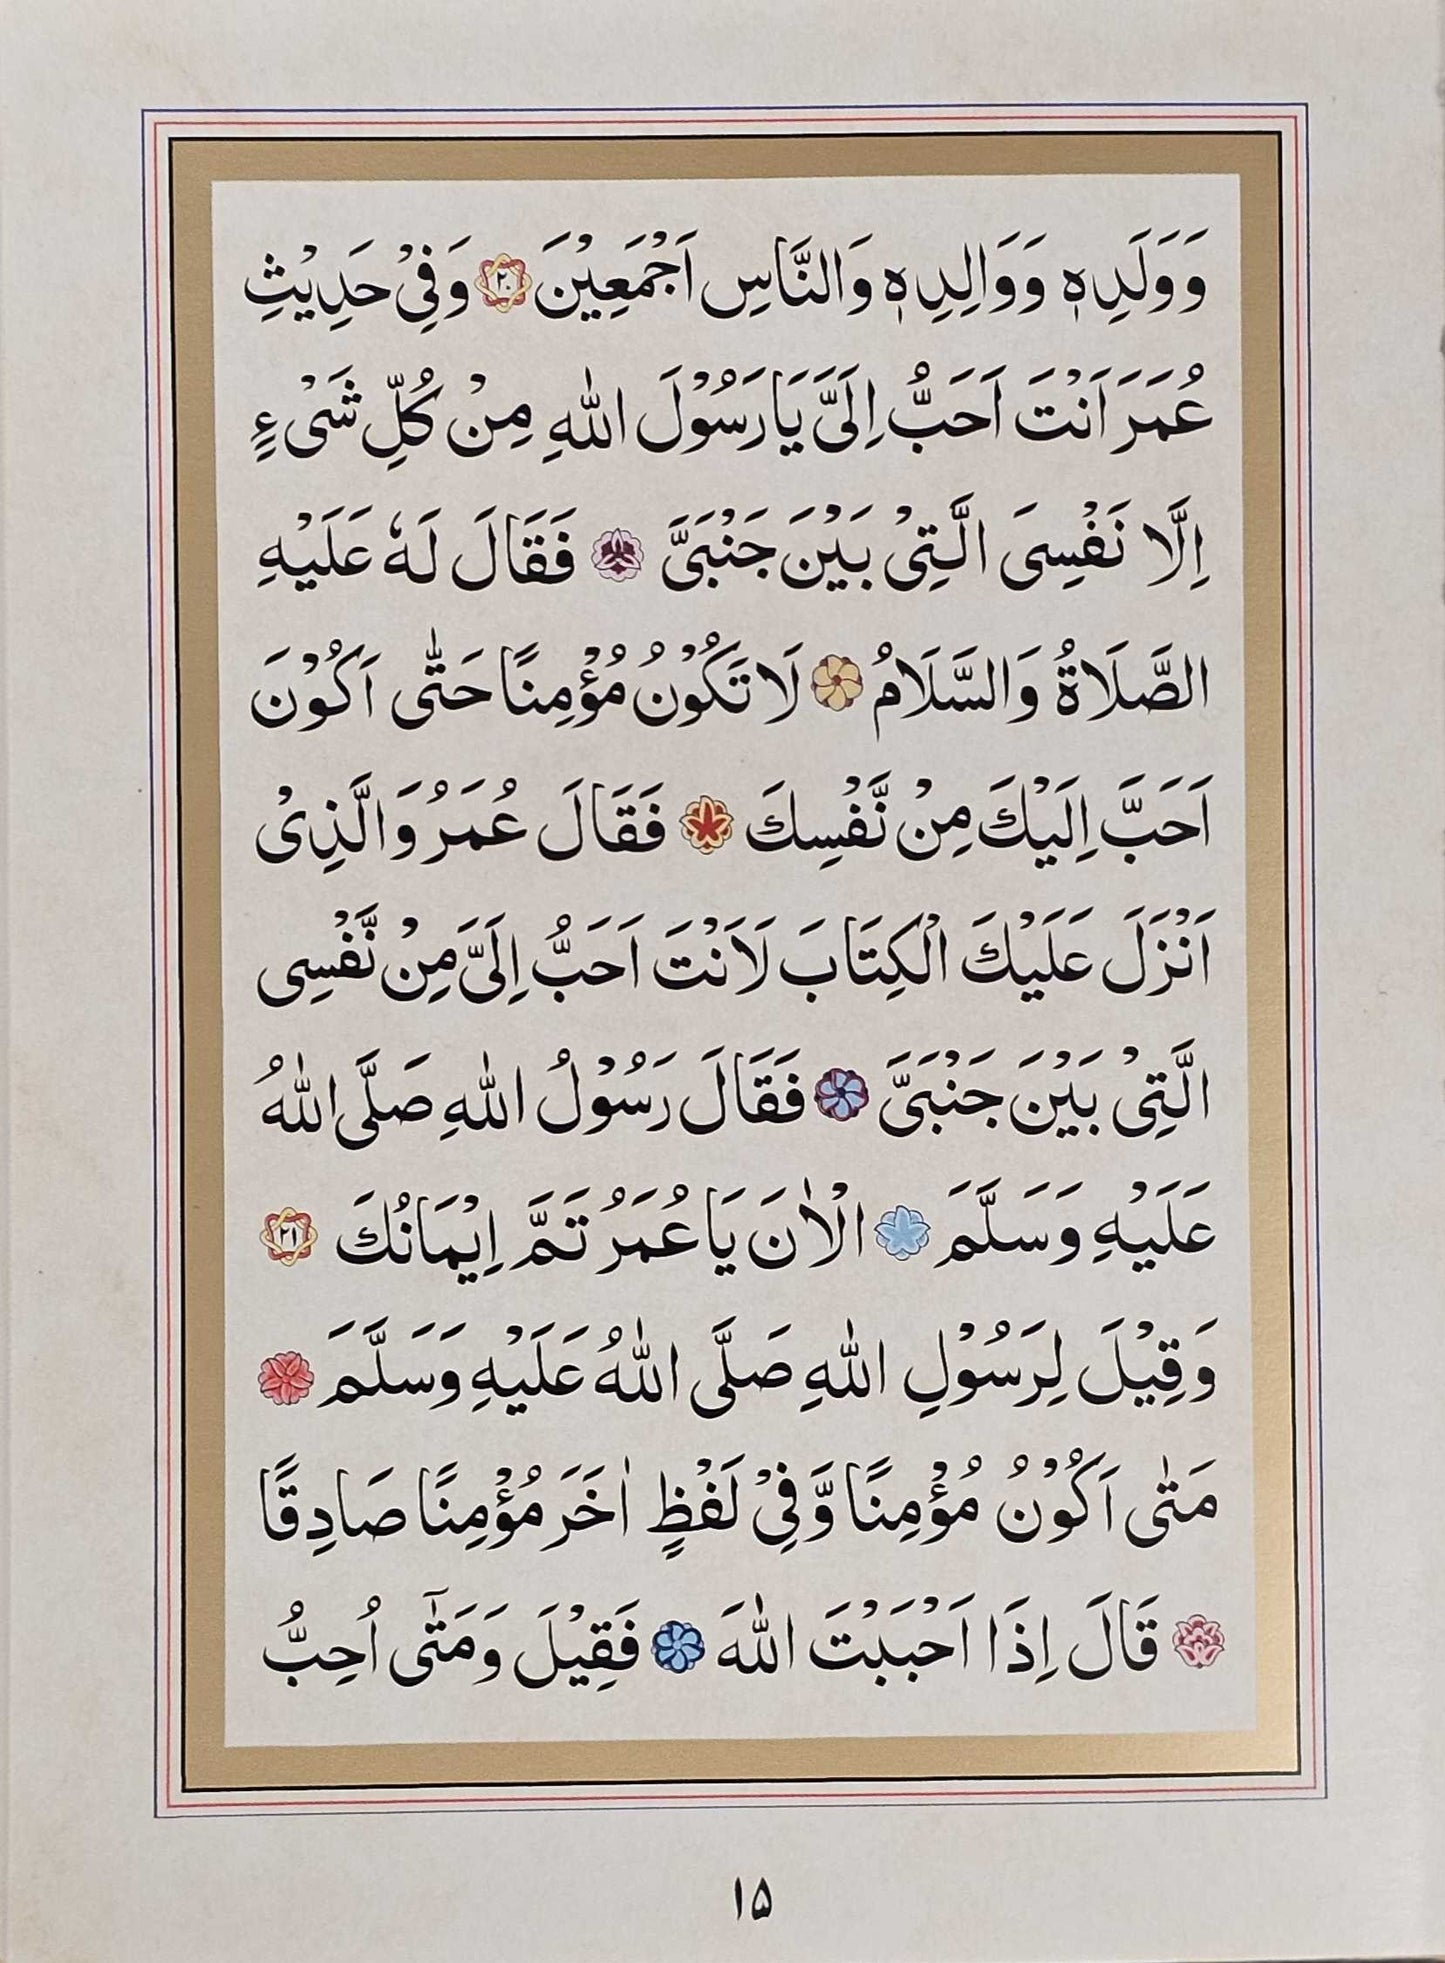 وَوَلَدِهٖ وَوَالِدِهٖ وَالنَّاسِ اَجْمَعِيْنَ ۲۰ وَفِىْ حَدِيْثِ
عُمَرَ اَنْتَ اَحَبُّ اِلَىَّ يَارَسُوْلَ اللّٰهِ مِنْ كُلِّ شَىْءٍ
اِلَّا نَفْسِىَ الَّتِىْ بَيْنَ جَنْبَىَّ فَقَالَ لَهٗ عَلَيْهِ
الصَّلَاةُ وَالسَّلَامُ لَا تَكُوْنُ مُؤْمِنًا حَتّٰى اَكُوْنَ
اَحَبَّ اِلَيْكَ مِنْ نَّفْسِكَ فَقَالَ عُمَرُ وَالَّذِىْ
اَنْزَلَ عَلَيْكَ الْكِتَابَ لَاَنْتَ اَحَبُّ اِلَىَّ مِنْ نَّفْسِى
الَّتِىْ بَيْنَ جَنْبَىَّ فَقَالَ رَسُوْلُ اللّٰهِ صَلَّى اللّٰهُ
عَلَيْهِ وَسَلَّمَ الْاٰنَ يَا عُمَرُ تَمَّ اِيْمَانُكَ ۲۱
وَقِيْلَ لِرَسُوْلِ اللّٰهِ صَلَّى اللّٰهُ عَلَيْهِ وَسَلَّمَ
مَتٰى اَكُوْنُ مُؤْمِنًا وَّفِىْ لَفْظٍ اٰخَرَ مُؤْمِنًا صَادِقًا
قَالَ اِذَا اَحْبَبْتَ اللّٰهَ فَقِيْلَ وَمَتٰٓى اُحِبُّ
۱۵